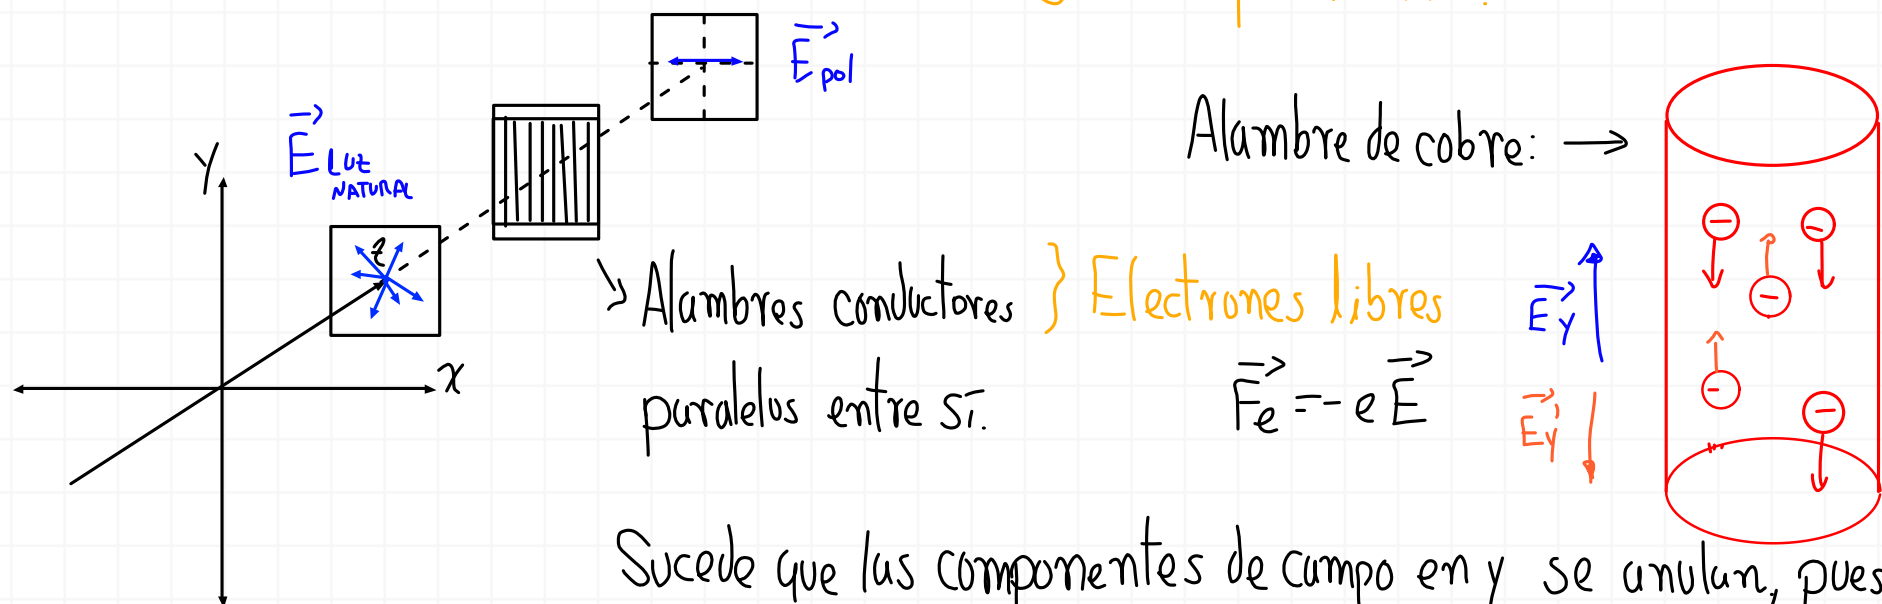 E pol
E luz
NATURAL
Y
z
x
Alambre de cobre: →
Alambres conductores } Electrones libres
paralelos entre sí.
Fe = - e E
Ey
Ey
Sucede que las componentes de campo en y se anulan, pues